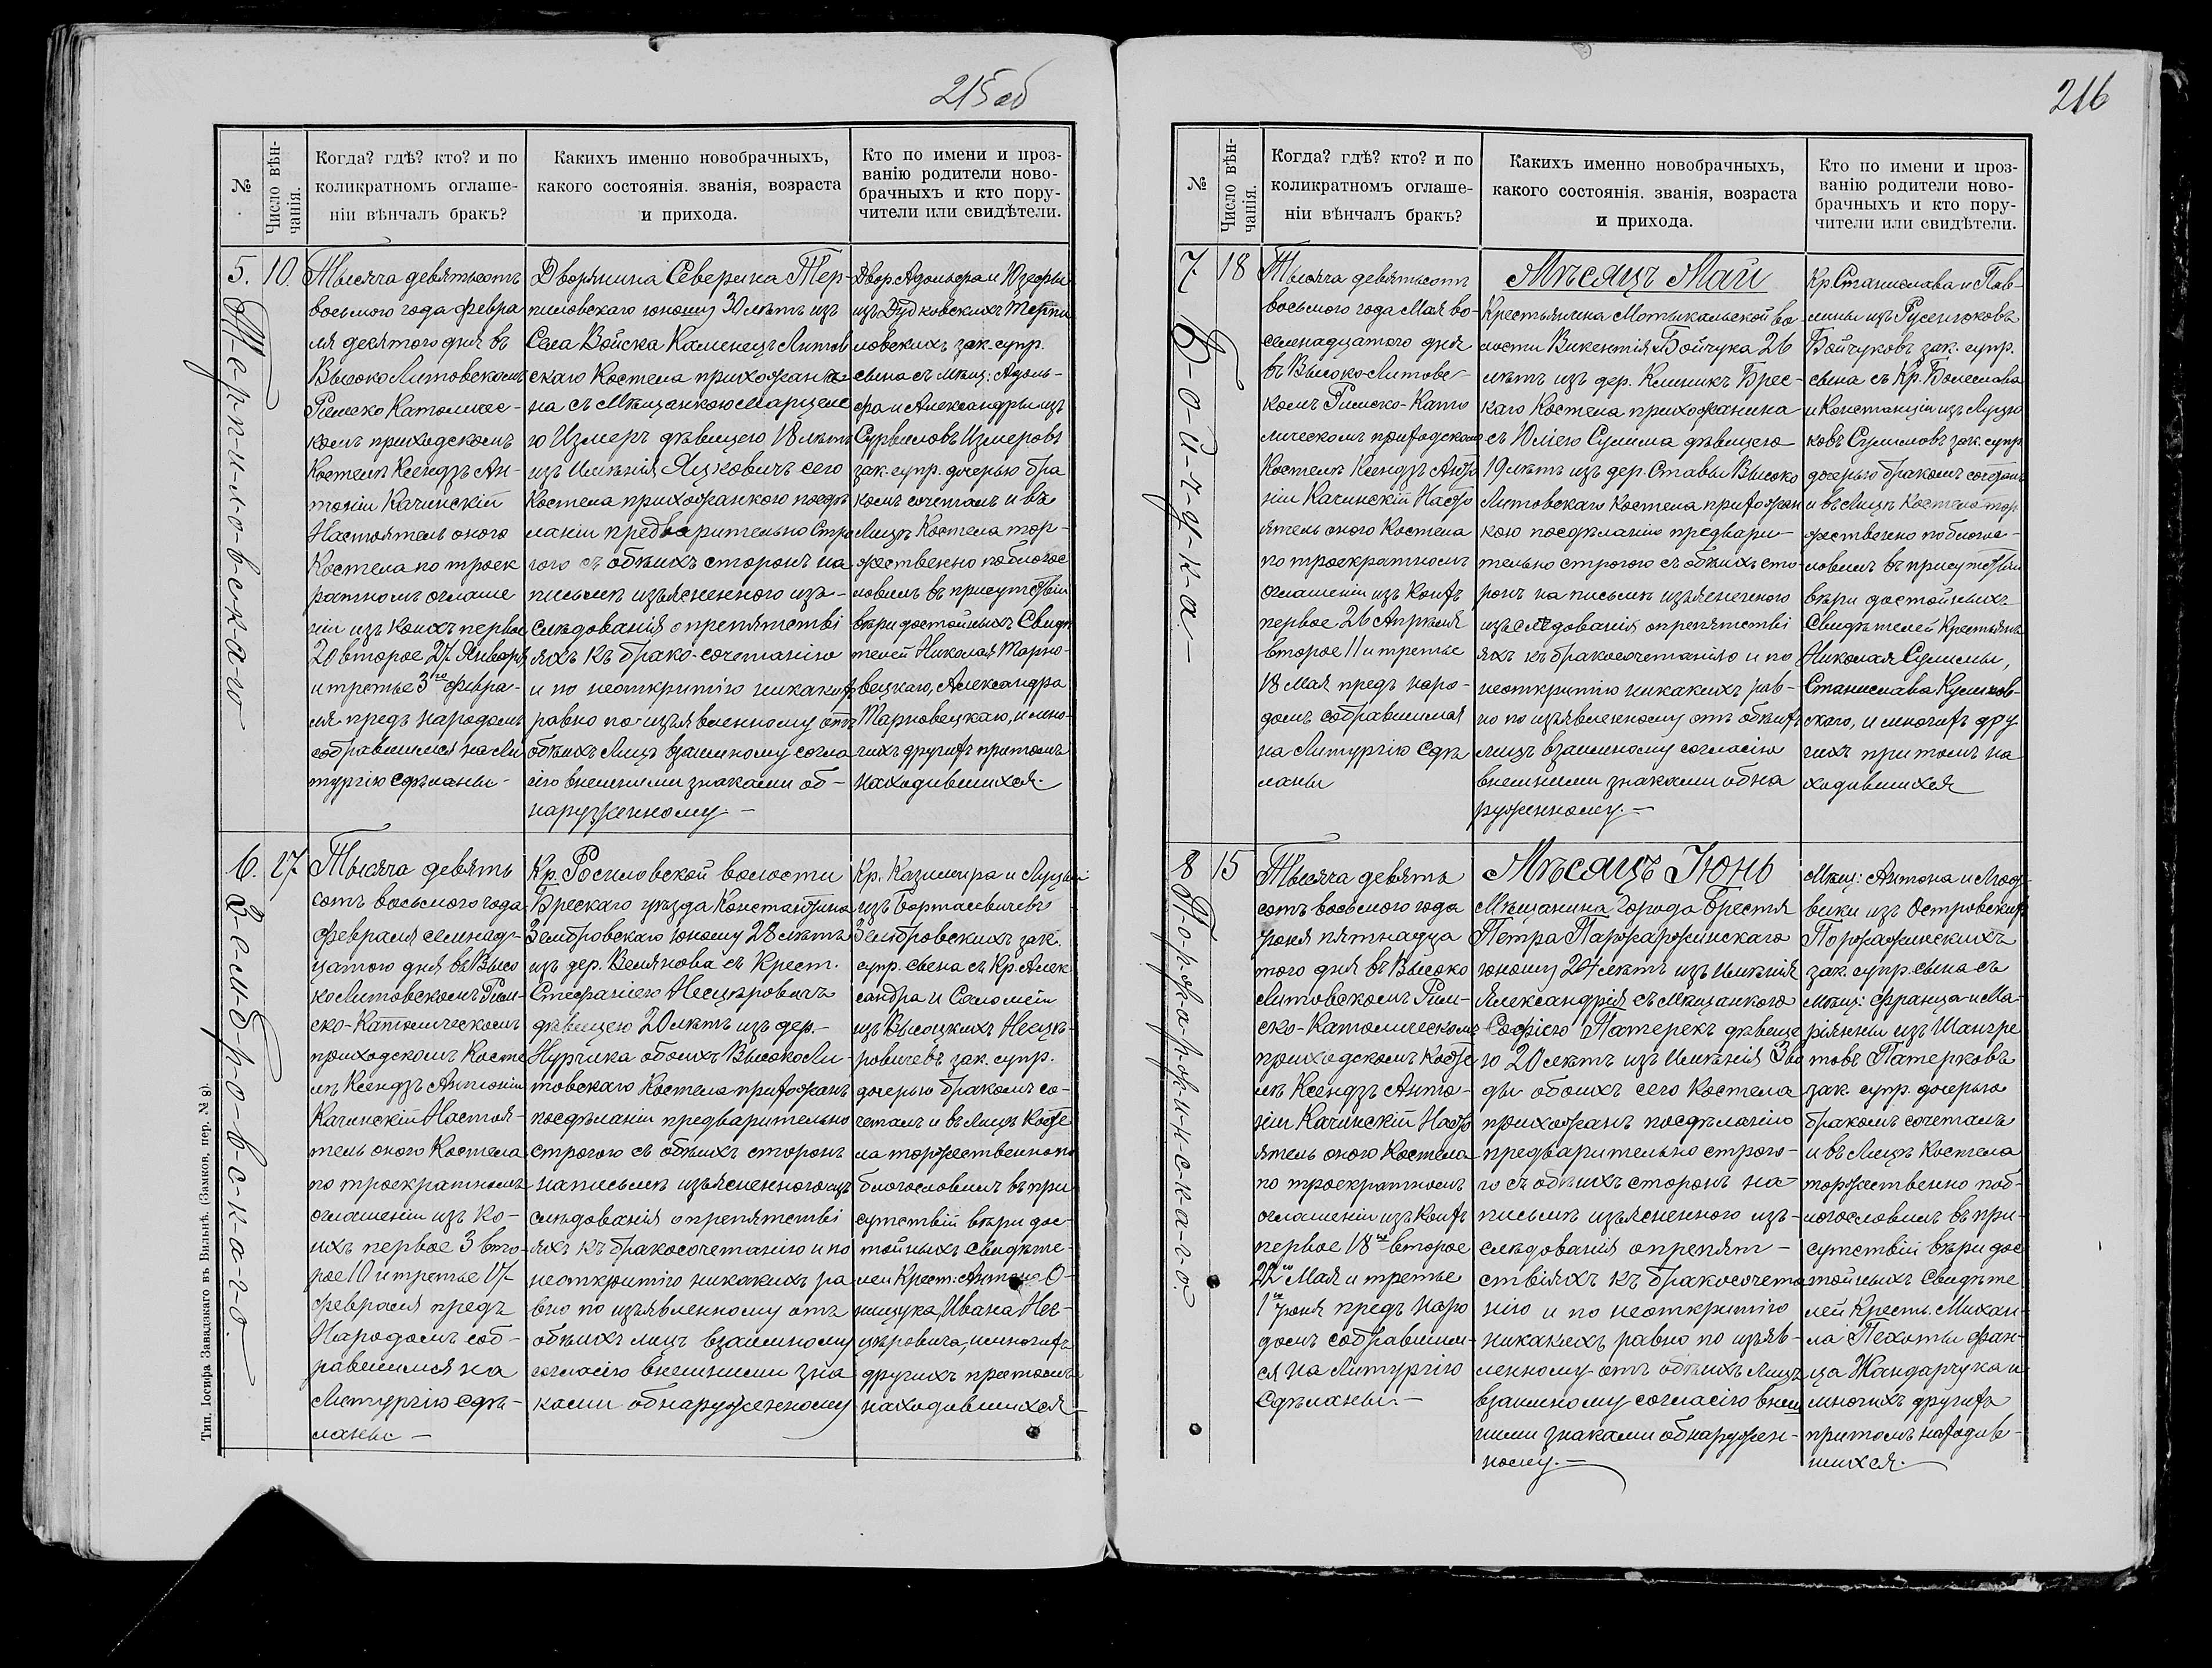 215об
№
Число вѣн-
чанія.
Когда? гдѣ? кто? и по
коликратномъ оглаше-
ніи вѣнчалъ бракъ?
Какихъ именно новобрачныхъ,
какого состоянія. званія, возраста
и прихода.
Кто по имени и проз-
ванію родители ново-
брачныхъ и кто пору-
чители или свидѣтели.
5.
10.
Т-а-р-п-и-л-о-в-с-к-а-го
Тысяча девятьсотъ
восьмого года февра
ля десятого дня въ
Высоко Литовскомъ
Римско Католичес-
комъ приходскомъ
Костелѣ Ксендзъ Ан-
тоній Качинскій
Настоятель оного
Костела по троек
ратномъ оглаше
ніи изъ коихъ первое
20 второе 27 Января
и третье 3го февра-
ля предъ народомъ
собравшимся на Ли
тургію сдѣланы-
Дворянина Северина Тер-
пиловскаго юношу 30 лѣтъ изъ
Села Войска Каменецъ Литов
скаго Костела прихожани
на съ Мѣщанкою Марцеле
ю Измеръ дѣвицею 18 лѣтъ
изъ Имѣнія Яцковичъ сего
Костела прихожанкою посдѣ
ланіи предварительно Стро
гого съ обѣихъ сторонъ на
письмѣ изъясненного изъ-
слѣдованія о препятстві
яхъ къ брако-сочетанію
и по неоткритію никаких
равно по изъявленному отъ
обѣихъ Лицъ взаимному согла
сію внешними знаками об-
наруженному-
Двор. Адольфа и Юзефы
изъ Дудковскихъ Терпи
ловскихъ зак. супр.
сына съ Мѣщ: Адоль-
фа и Александры изъ
Сурвиловъ Измеровъ
зак. супр. дочерью бра
комъ сочеталъ и въ
Лицѣ Костела тор-
жественно поблогос
ловилъ въ присутствіи
вѣри достойныхъ Свидѣ
телей Николая Тарно-
вецкаго, Александра
Тарновецкаго, и мно-
гихъ другихъ притомъ
находившихся-
6.
17
З-е-м-б-р-о-в-с-к-а-г-о.
Тысяча девять
сотъ восьмого года
февраля семнад-
цатого дня въ Высо
ко Литовскомъ Рим-
ско-Католическомъ
приходскомъ Косте
лѣ Ксендзъ Антоній
Качинскій Настоя-
тель оного Костела
по троекратномъ
оглашеніи изъ ко-
ихъ первое 3 вто-
рое 10 и третье 17
февраля предъ
Народомъ соб-
равшимся на
Литургію сдѣ-
ланы-
Кр. Росиловской волости
Брескаго уѣзда Константина
Зембровскаго юношу 28 лѣтъ
изъ дер. Велянова съ Крест.
Стефаніею Несцѣровичъ
дѣвицею 20 лѣтъ изъ дер.-
Нурчика обоихъ Высоко Ли-
товскаго Костела прихожанъ
посдѣланіи предварительно
строгого съ обѣихъ сторонъ
на письмѣ изъясненного изъ
слѣдованія о препятстві
яхъ къ бракосочетанію и по
неоткритію никакихъ ра
вно по изъявленному отъ
обѣихъ лицъ взаимному
согласію внешними зна
ками обнаруженному
Кр. Казимира и Луціи
изъ Бортасевичевъ
Зембровскихъ зак.
супр. сына съ Кр. Алек
сандра и Саломеи
изъ Высоцкихъ Несцѣ-
ровичевъ зак. супр.
дочерью бракомъ со-
четалъ и въ Лицѣ Косте
ла торжественно по
благословилъ въ при
сутствій вѣри дос-
тойныхъ Свидѣте-
лей Крест: Антона О-
нищука, Ивана Нес-
цѣровича, и многихъ
другихъ притомъ
находившихся-
Тип. Іосифа Завадзкаго въ Вильнѣ. (Замков. пер. № 8).
216
№
Число вѣн-
чанія.
Когда? гдѣ? кто? и по
коликратномъ оглаше-
ніи вѣнчалъ бракъ?
Какихъ именно новобрачныхъ,
какого состоянія. званія, возраста
и прихода.
Кто по имени и проз-
ванію родители ново-
брачныхъ и кто пору-
чители или свидѣтели.
7.
18
Б-о-й-ч-у-к-а-
Тысяча девятьсотъ
восьмого года Мая во-
семнадцатого дня
въ Высоко-Литовс-
комъ Римско-Като
лическомъ приходском
Костелѣ Ксендзъ Анто
ніи Качинскій Насто
ятель оного Костела
по троекратномъ
оглашеніи изъ Коихъ
первое 26 Апрѣля
второе 11 и третье
18 Мая предъ наро-
домъ собравшимся
на Литургію Сдѣ
ланы
Мѣсяцъ Май
Крестьянина Мотыкальской во-
лости Викентія Бойчука 26
лѣтъ изъ дер. Клиникъ Брес-
каго Костела прихожанина
съ Юліею Сулима дѣвицею
19 лѣтъ изъ дер. Ставы Высоко
Литовскаго Костела прихожан
кою посдѣланію предвари-
тельно строгого съ обѣихъ сто-
ронъ на письмѣ изъясненого
изъслѣдованія о препятстві
яхъ къ бракосочетанію и по
неоткритію никакихъ рав-
но по изъявленному отъ обѣихъ
лицъ взаимному согласію
внешними знаками обна
руженному.-
Кр. Станислава и Пав-
лины изъ Русенюковъ
Бойчуковъ зак. супр.
сына съ Кр. Болеслава
и Констанціи изъ Луцю
ковъ Сулимовъ зак. супр
дочерью бракомъ сочеталъ
и въ Лицѣ Костела тор
жествено поблогос-
ловилъ въ присутствіи
вѣри достойныхъ
Свидѣтелей Крестьянъ
Николая Сулимы,
Станислава Куликов-
скаго, и многихъ дру
гихъ притомъ на
ходившихся
8
15
П-о-р-ж-а-р-ж-и-н-с-к-а-г-о.
Тысяча девять
сотъ восьмого года
Іюня пятнадца
того дня въ Высоко
Литовскомъ Рим-
ско-Католическомъ
приходскомъ Косте
лѣ Ксендзъ Анто-
ніи Качинскій Насто
ятель оного Костела
по троекратномъ
оглашеніи изъ Коихъ
первое 18го второе
22го Мая и третье
1го Іюня предъ наро
домъ собравшим-
ся на Литургію
Сдѣланы.-
Мѣсяцъ Іюнь
Мѣщанина Города Брестя
Петра Паржаржинскаго
юношу 24 лѣтъ изъ Имѣнія
Александрія съ Мѣщанкою
Софіею Патерекъ дѣвице
ю 20 лѣтъ изъ Имѣнія Зво
ды обоихъ сего Костела
прихожанъ посдѣланію
предварительно строго-
го съ обѣихъ сторонъ на
письмѣ изъясненного изъ-
слѣдованія о препят-
ствіяхъ къ бракосочета
нію и по неоткритію
никакихъ равно по изъяв-
ленному отъ обѣихъ Лицъ
взаимному согласію внеш
ними знаками обнаружен-
ному.-
Мѣщ: Антона и Люд-
вики изъ Островских
Поржажинскихъ
зак. супр. сына съ
Мѣщ: Франца и Ма-
ріянны изъ Шангре
товъ Патерковъ
зак. супр. дочерью
бракомъ сочеталъ
и въ Лицѣ Костела
торжественно поб-
логословилъ въ при-
сутствій вѣри дос
тойныхъ Свидѣте
лей Кресть. Михаи-
ла Пехоты Фран-
ца Жандарчука и
многихъ другихъ
притомъ находив-
шихся.-